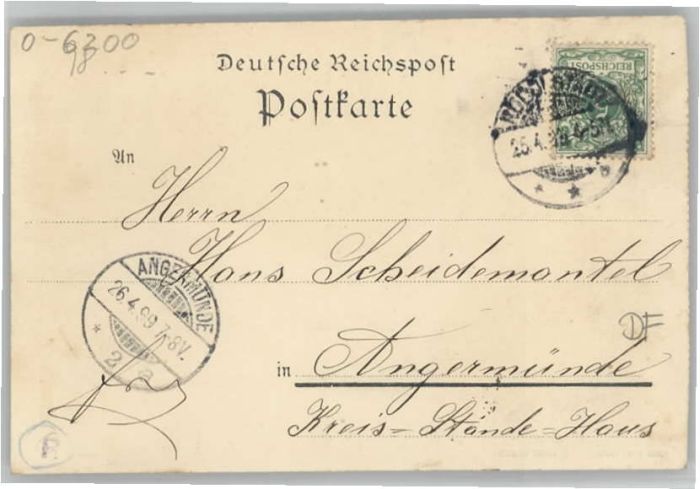 0-6300
Deutsche Reichspost
Postkarte
REICHSPOST
25.4.99 4-5N.
An
Herrn
Hans Scheidemantel
ANGERMÜNDE
26.4.99 7-8V.
* 2 a
DF
in Angermünde
Kreis=Stände=Haus